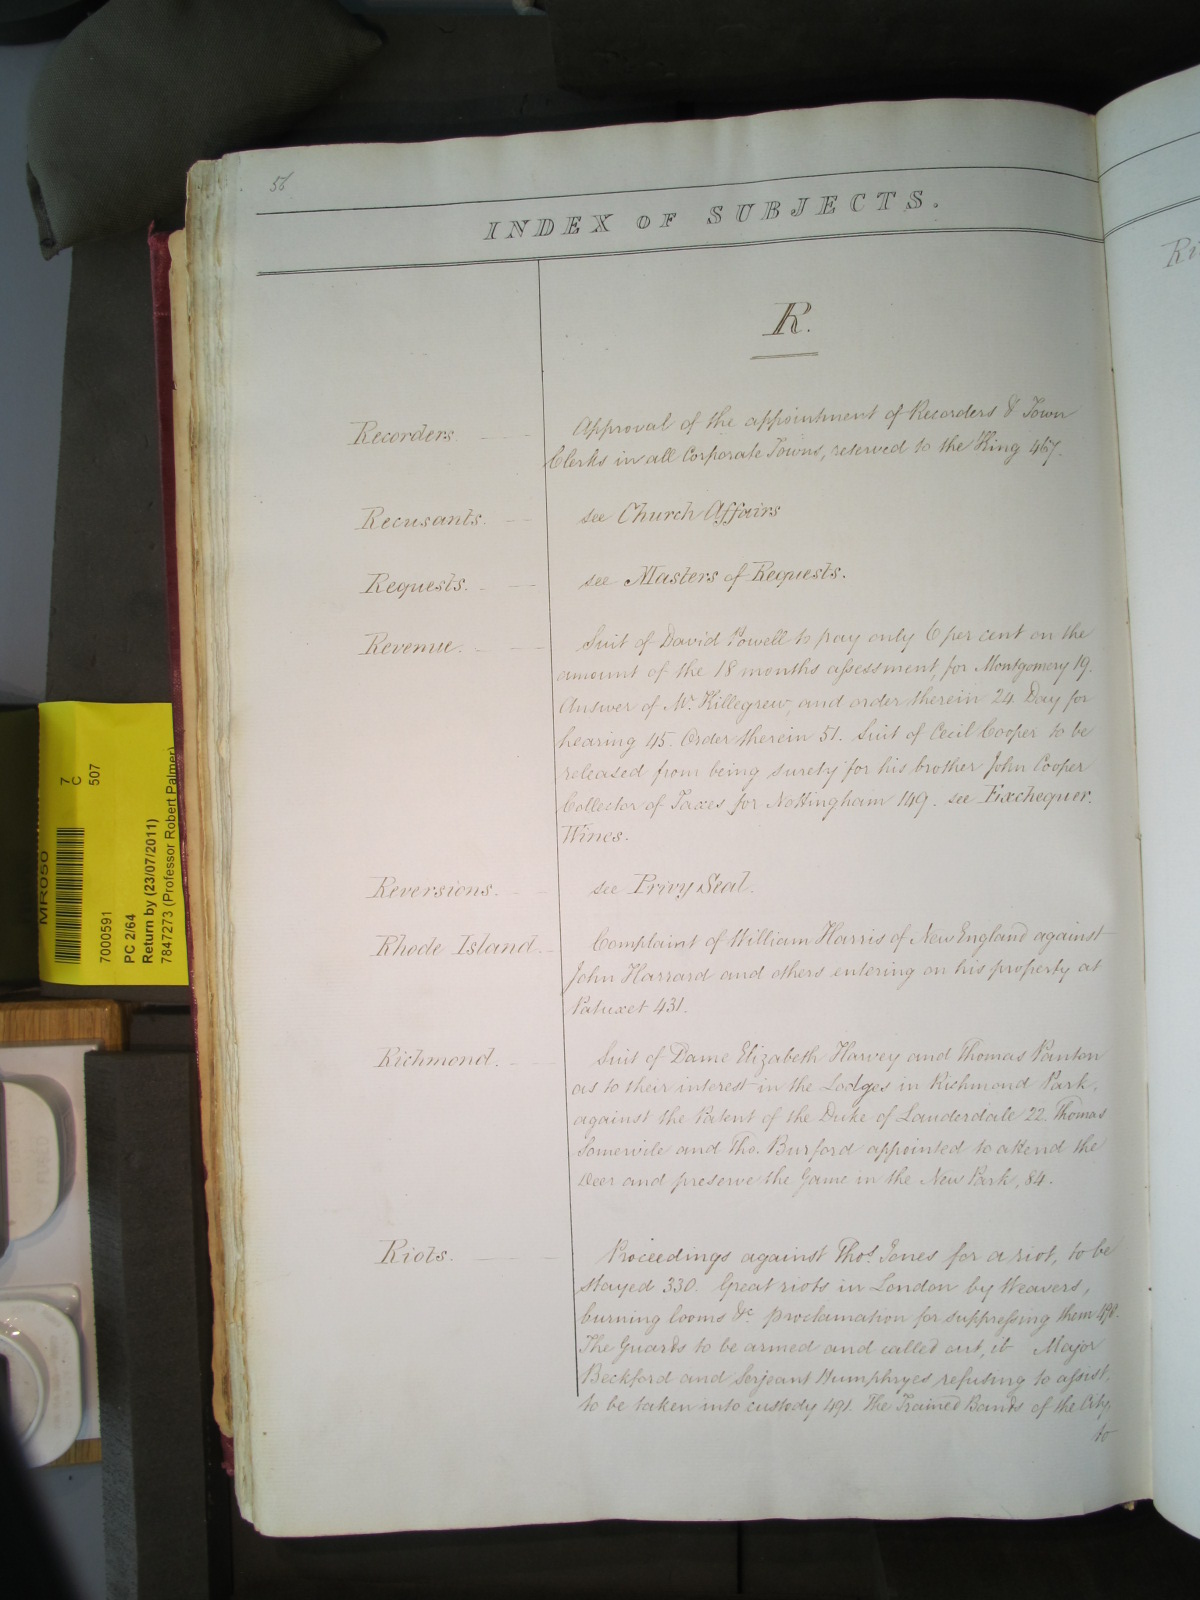 56
INDEX OF SUBJECTS.
R.
Recorders. Approval of the appointment of Recorders & Town
Clerks in all Corporate Towns, reserved to the King 467.
Recusants. see Church Affairs
Requests. see Masters of Requests.
Revenue. Suit of David Powell to pay only 6 per cent on the
amount of the 18 months assessment, for Montgomery 19.
Answer of Mr. Killegrew, and order therein 24 Day for
hearing 45. Order therein 51. Suit of Cecil Cooper to be
released from being surety for his brother John Cooper
Collector of Taxes for Nottingham 149. see Exchequer.
Wines.
Reversions. see Privy Seal.
Rhode Island. Complaint of William Harris of New England against
John Harrard and others entering on his property at
Patuxet 431.
Richmond. Suit of Dame Elizabeth Harvey and Thomas Panton
as to their interest in the Lodges in Richmond Park,
against the Patent of the Duke of Lauderdale 22. Thomas
Somervile and Tho. Burford appointed to attend the
Deer and preserve the Game in the New Park, 84.
Riots. Proceedings against Thos. Jones for a riot, to be
stayed 330. Great riots in London by Weavers,
burning looms &c. proclamation for suppressing them 490.
The Guards to be armed and called out, ib Major
Beckford and Serjeant Humphryes refusing to assist,
to be taken into custody 491. The Trained Bands of the City,
to
MR050
7
C
507
7000591
PC 2/64
Return by (23/07/2011)
7847273 (Professor Robert Palmer)